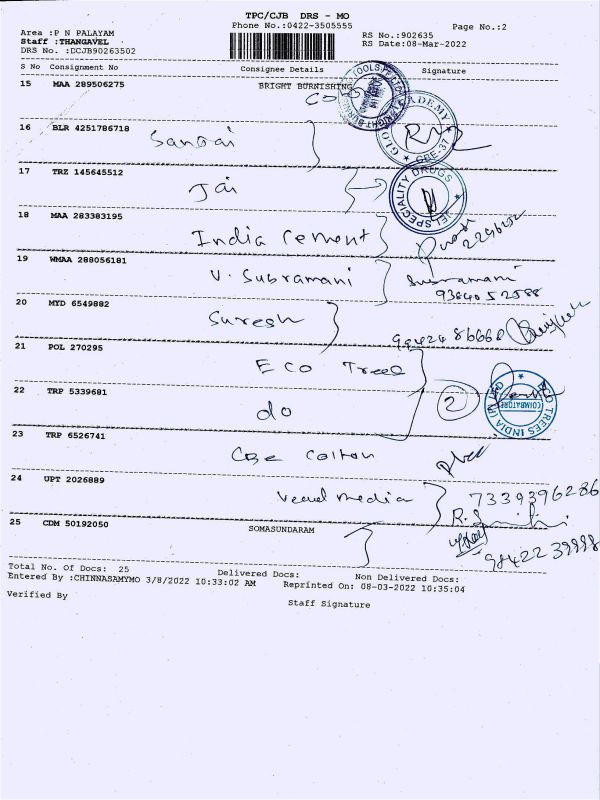 TPC/CJB DRS - MO
Phone No.:0422-3505555 Page No.:2
Area :P N PALAYAM RS No.:902635
Staff :THANGAVEL RS Date:08-Mar-2022
DRS No. :DCJB90263502
S No Consignment No Consignee Details Signature
15 MAA 289506275 BRIGHT BURNISHING
16 BLR 4251786718
17 TRZ 145645512 Jai
SPECIALITY DRUGS
18 MAA 283383195 India Cement
19 WMAA 288056181 V. Subramani Subramani
9364052588
20 MYD 6549882 Suresh
21 POL 270295 Eco Trees
22 TRP 5339681 do 2
ECO TREES INDIA (P) LTD COIMBATORE
23 TRP 6526741 Cbe Cotton
24 UPT 2026889 media 7339396286
25 CDM 50192050 SOMASUNDARAM
Total No. Of Docs: 25 Delivered Docs: Non Delivered Docs:
Entered By :CHINNASAMYMO 3/8/2022 10:33:02 AM Reprinted On: 08-03-2022 10:35:04
Verified By
Staff Signature